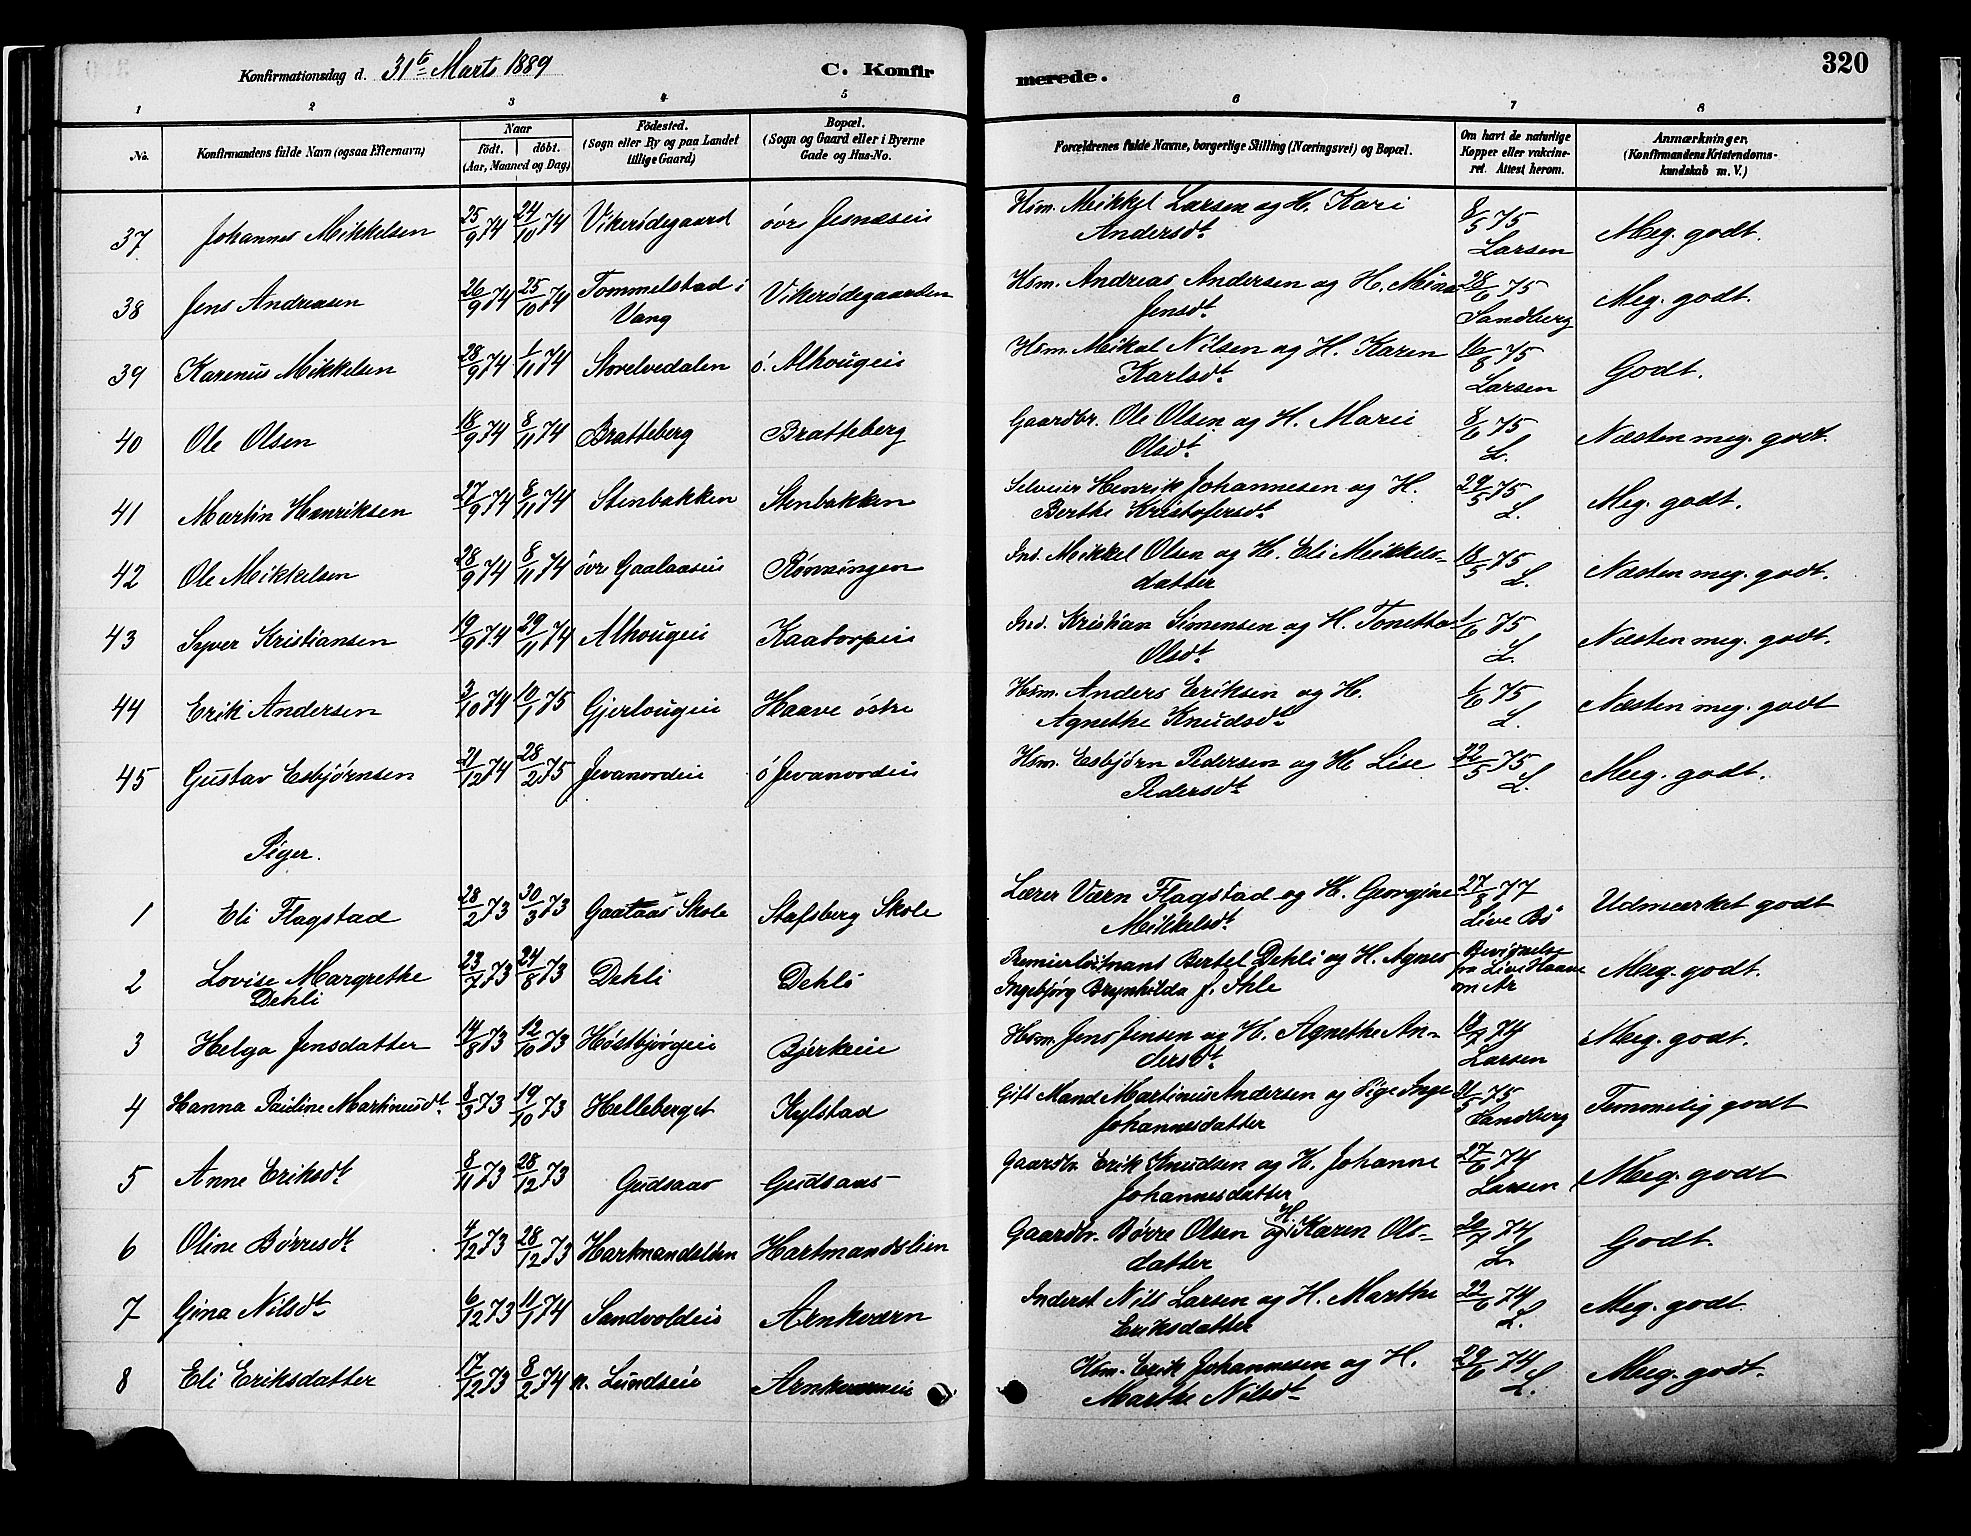 Konfirmationsdag d. 31te Marts 1889 C. Konfirmerede. 320
1 2 3 4 5 6 7 8
No. Konfirmandens fulde Navn (ogsaa Efternavn) Naar Födt. döbt. (Aar, Maaned og Dag) Födested. (Sogn eller By og paa Landet tillige Gaard) Bopæl. (Sogn og Gaard eller i Byerne Gade og Hus-No. Forældrenes fulde Navne, borgerlige Stilling (Næringsvei) og Bopæl. Om havt de naturlige Kopper eller vakcineret. Attest herom. Anmærkninger. (Konfirmandens Kristendomskundskab m. V.)
37 Johannes Mikkelsen 25/9 74 24/10 74 Vikerødegaard övr Jesnæseie Hsm. Mikkel Larsen og H. Kari Andersdt. 8/5 75 Larsen Meg. godt.
38 Jens Andreasen 26/9 74 25/10 74 Tommelstad i Vang Vikerødegaarden Hsm. Andreas Andersen og H. Mina Jensdt. 28/6 75 Sandberg Meg. godt.
39 Karenus Mikkelsen 28/9 74 1/11 74 Storelvedalen ö. Alhougeie Hsm. Mikal Nilsen og H. Karen Karlsdt. 16/8 75 Larsen Godt.
40 Ole Olsen 18/9 74 8/11 74 Bratteberg Bratteberg Gaardbr. Ole Olsen og H. Marie Olsdt. 8/6 75 L. Næsten meg. godt.
41 Martin Henriksen 27/9 74 8/11 74 Stenbakken Stenbakken Selveier Henrik Johannesen og H. Berthe Kristofersdt. 29/5 75 L. Meg. godt.
42 Ole Mikkelsen 28/9 74 8/11 74 övr Gaalaaseie Rønningen Ind. Mikkel Olsen og H. Eli Mikkelsdatter 18/5 75 L. Næsten meg. godt.
43 Syver Kristiansen 19/9 74 29/11 74 Alhougeie Kaatorpeie Ind. Kristian Simensen og H. Tonetta Olsdt. 1/6 75 L. Næsten meg. godt.
44 Erik Andersen 3/10 74 10/1 75 Gjerlougeie Haave östre Hsm. Anders Eriksen og H. Agnethe Knudsdt. 1/6 75 L. Næsten meg. godt
45 Gustav Esbjørnsen 21/12 74 28/2 75 Jevanordeie ö Jevanordeie Hsm. Esbjørn Pedersen og H Lise Pedersdt. 22/5 75 L. Meg. godt.
Piger.
1 Eli Flagstad 28/2 73 30/3 73 Gaalaas Skole Stafsberg Skole Lærer Værn Flagstad og H. Georgine Mikkelsdt. 27/8 77 Live Bö Udmærket godt
2 Lovise Margrethe Dehli 23/7 73 24/8 73 Dehli Dehli Premierløitnant Bertel Dehli og H. Agnes Ingebjørg Brynhilda f. Ihle Bevignelse fra Live Haave om Ar Meg. godt.
3 Helga Jensdatter 14/8 73 12/10 73 Høstbjørgeie Bjerkeie Hsm. Jens Jensen og H. Agnethe Andersdt. 18/7 74 Larsen Meg. godt.
4 Hanna Pauline Martinusdt. 8/3 73 19/10 73 Helleberget Kylstad Gift Mand Martinus Andersen og Pige Inge Johannesdatter 11/5 75 Sandberg Temmelig godt
5 Anne Eriksdt 8/11 73 28/12 73 Gudsaas Gudsaas Gaardbr. Erik Knudsen og H. Johanne Johannesdatter 27/6 74 Larsen Meg. godt
6 Oline Børresdt. 4/12 73 28/12 73 Hartmandslien Hartmandslien Gaardbr. Børre Olsen og H. Karen Olsdatter 20/7 74 L. Godt.
7 Gina Nilsdt. 6/12 73 11/1 74 Sandvoldeie Arnkværn Inderst Nils Larsen og H. Marthe Eriksdatter 22/6 74 L. Meg. godt.
8 Eli Eriksdatter 17/12 73 8/2 74 n. Lundseie Arnkværneie Hsm. Erik Johannesen og H. Marthe Nilsdt. 29/6 74 L. Meg. godt.